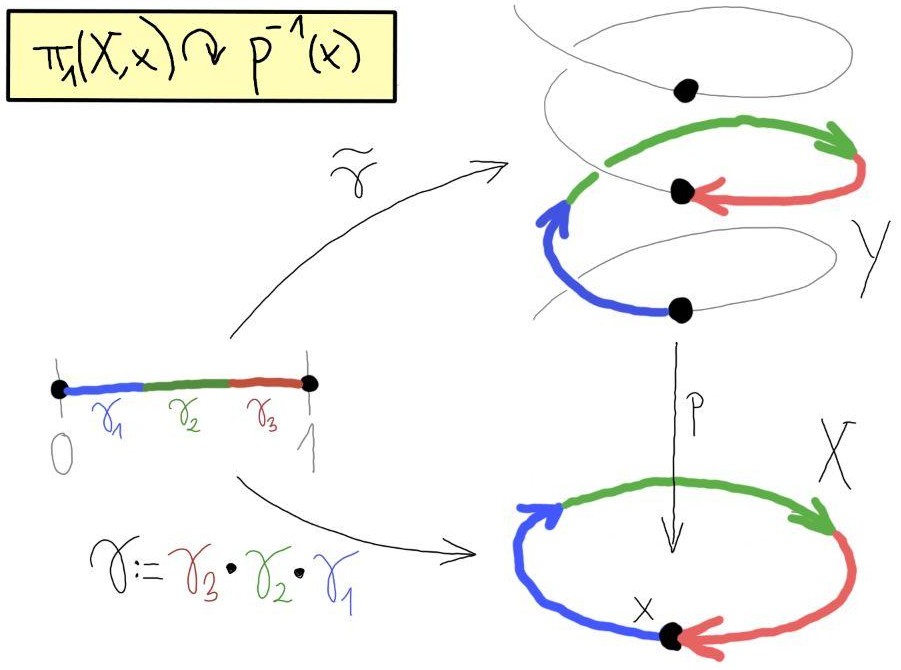 π₁(X,x) ↷ p⁻¹(x)
γ̃
Y
γ₁ γ₂ γ₃
0 1
p
X
γ := γ₃ • γ₂ • γ₁
x